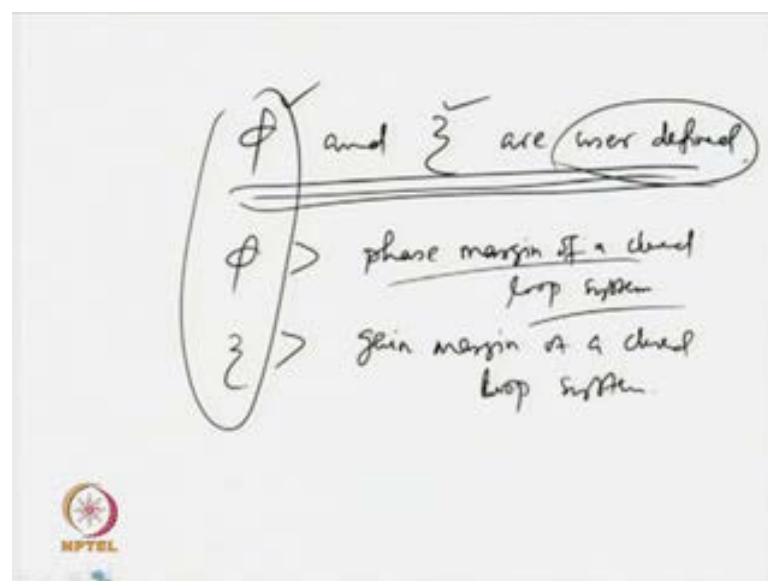 φ and ξ are user defined.
φ > phase margin of a closed
loop system
ξ > gain margin of a closed
loop system.
NPTEL